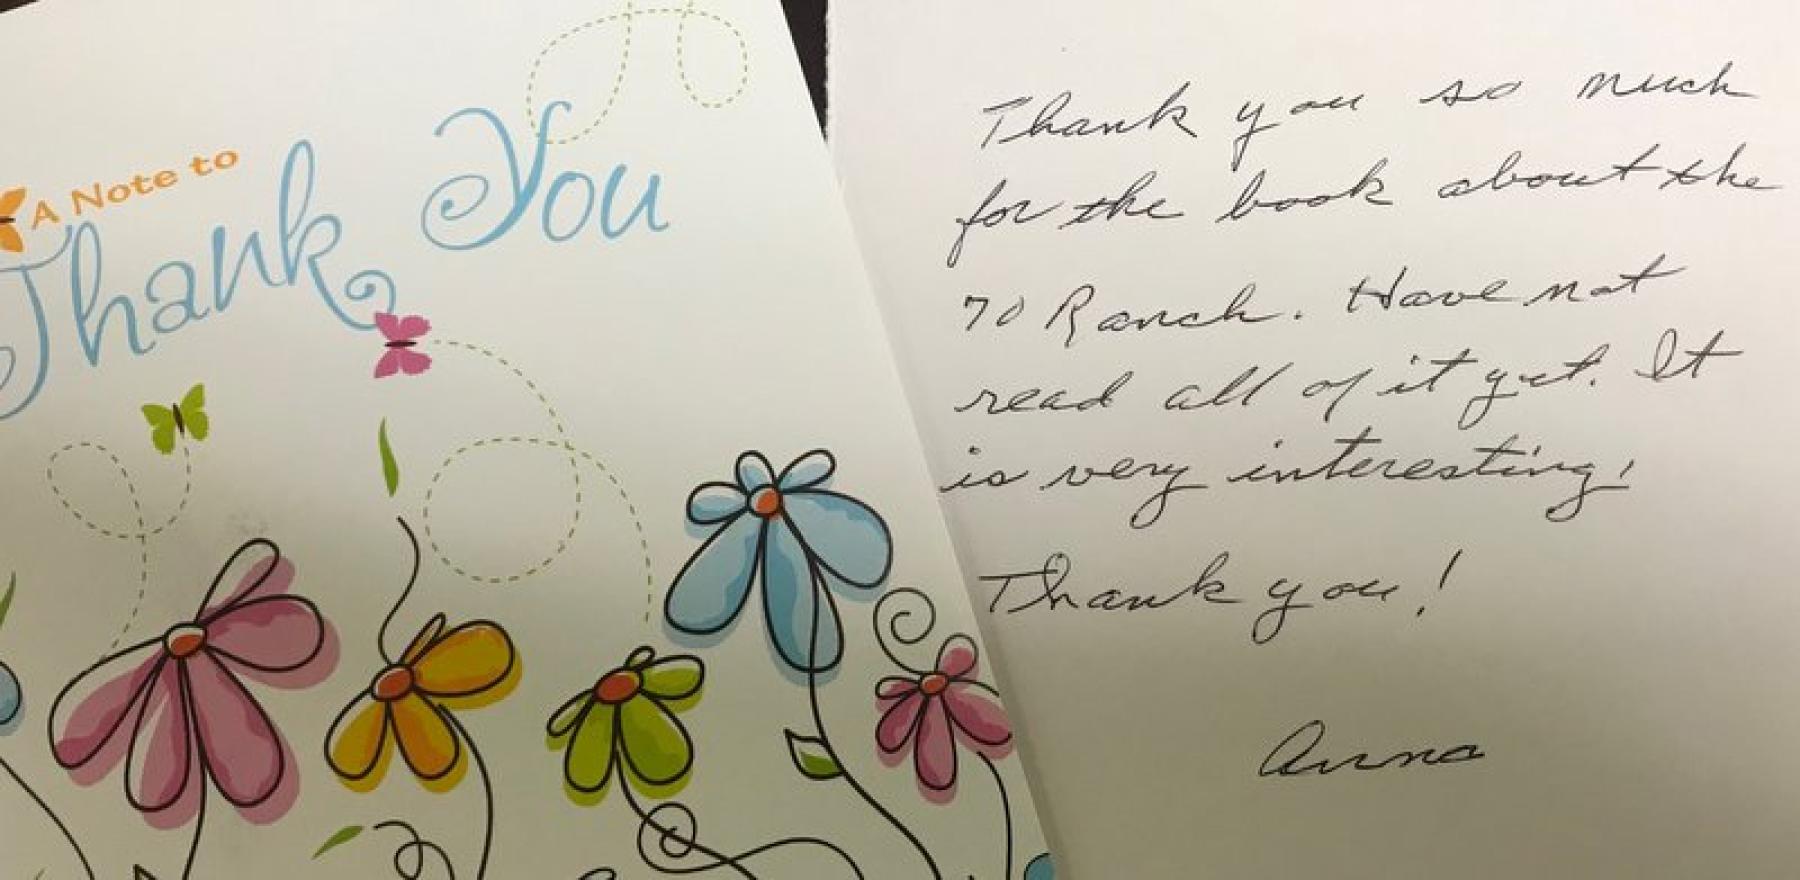 A Note to
Thank You
Thank you so much
for the book about the
70 Ranch. Have not
read all of it yet. It
is very interesting!
Thank you!
Anna